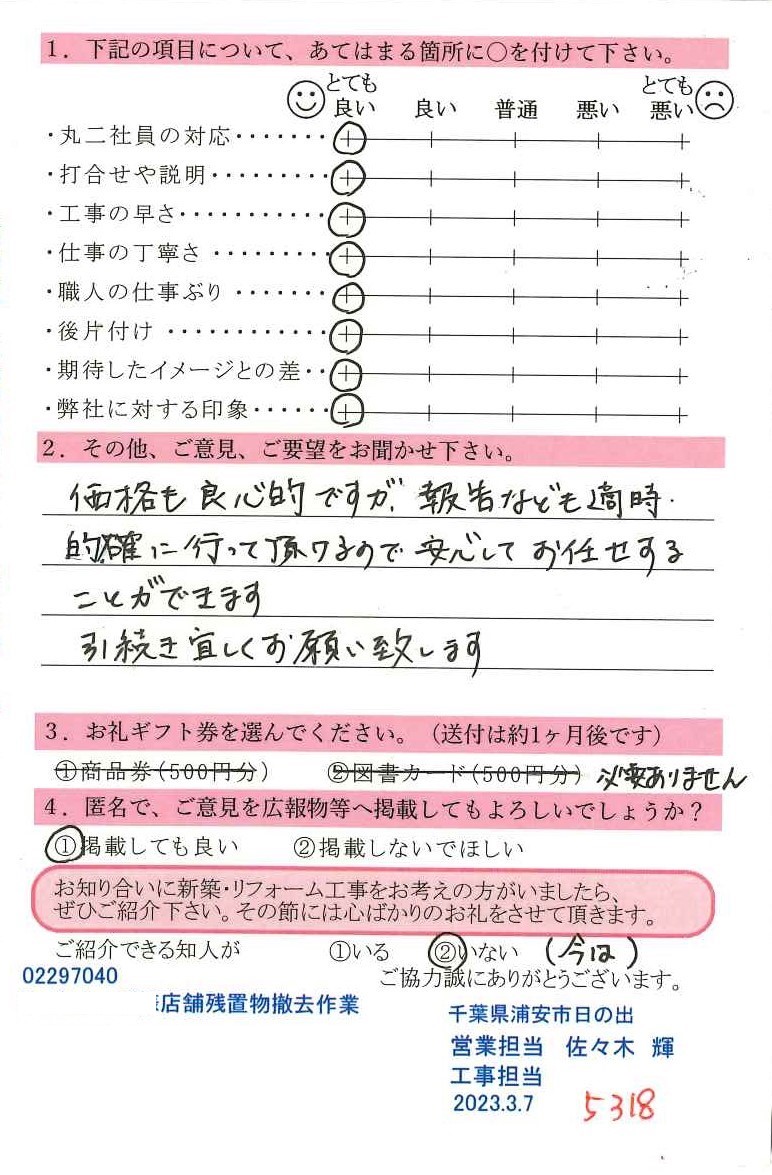 1．下記の項目について、あてはまる箇所に○を付けて下さい。
とても良い 良い 普通 悪い とても悪い
・丸二社員の対応・・・・・・・
・打合せや説明・・・・・・・・・
・工事の早さ・・・・・・・・・・・
・仕事の丁寧さ・・・・・・・・・
・職人の仕事ぶり・・・・・・・
・後片付け・・・・・・・・・・・・
・期待したイメージとの差・・
・弊社に対する印象・・・・・・
2．その他、ご意見、ご要望をお聞かせ下さい。
価格も良心的ですが、報告なども適時・
的確に行って頂けるので安心してお任せする
ことができます
引続き宜しくお願い致します
3．お礼ギフト券を選んでください。（送付は約1ヶ月後です）
①商品券（500円分） ②図書カード（500円分） 必要ありません
4．匿名で、ご意見を広報物等へ掲載してもよろしいでしょうか？
①掲載しても良い ②掲載しないでほしい
お知り合いに新築・リフォーム工事をお考えの方がいましたら、
ぜひご紹介下さい。その節には心ばかりのお礼をさせて頂きます。
ご紹介できる知人が ①いる ②いない （今は）
ご協力誠にありがとうございます。
02297040
店舗残置物撤去作業
千葉県浦安市日の出
営業担当 佐々木 輝
工事担当
2023.3.7
5318